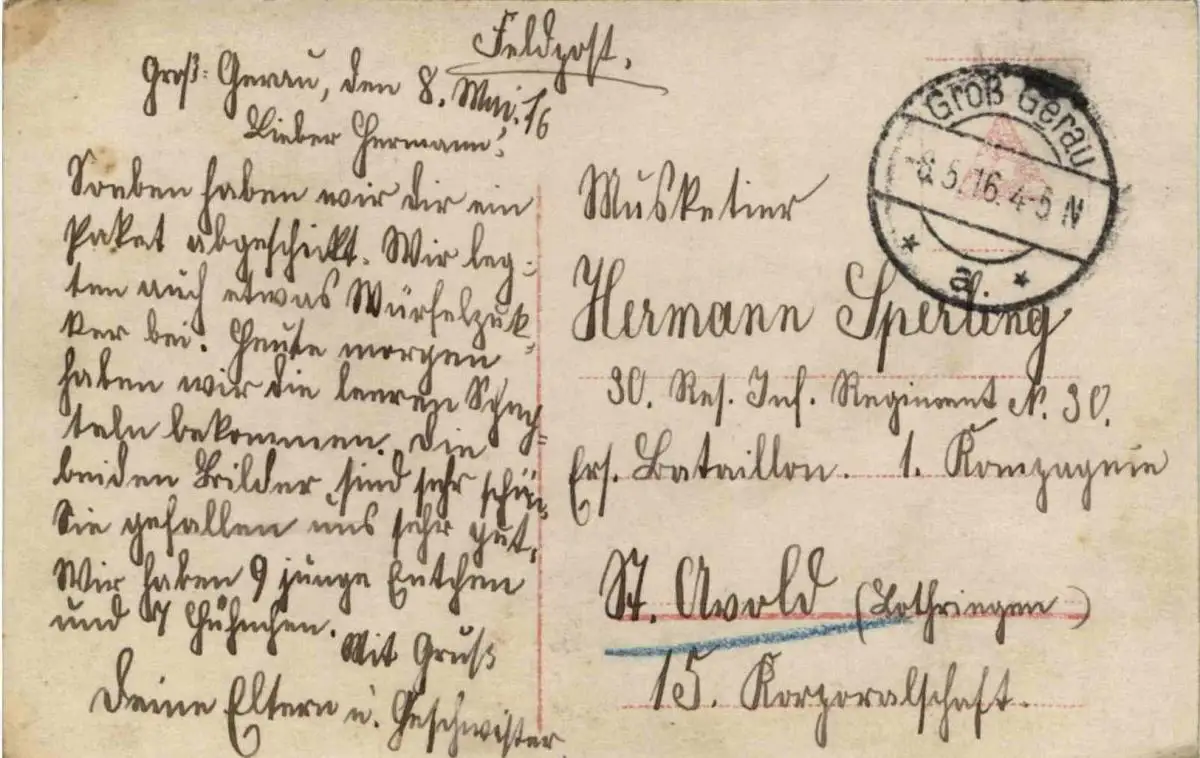 Feldpost.
Groß-Gerau, den 8. Mai. 16
Lieber Hermann!
Soeben haben wir dir ein
Paket abgeschickt. Wir leg-
ten auch etwas Würfelzuk-
ker bei. Heute morgen
haben wir die leeren Schach-
teln bekommen. Die
beiden Bilder sind sehr schön.
Sie gefallen uns sehr gut.
Wir haben 9 junge Entchen
und 7 Hühnchen.
Mit Gruß
Deine Eltern u. Geschwister
Groß Gerau
-8.5.16. 4-5 N
* a. *
Musketier
Hermann Sperling
30. Res. Inf. Regiment N. 30.
Ers. Bataillon. 1. Kompagnie
St. Avold (Lothringen)
15. Korporalschaft.